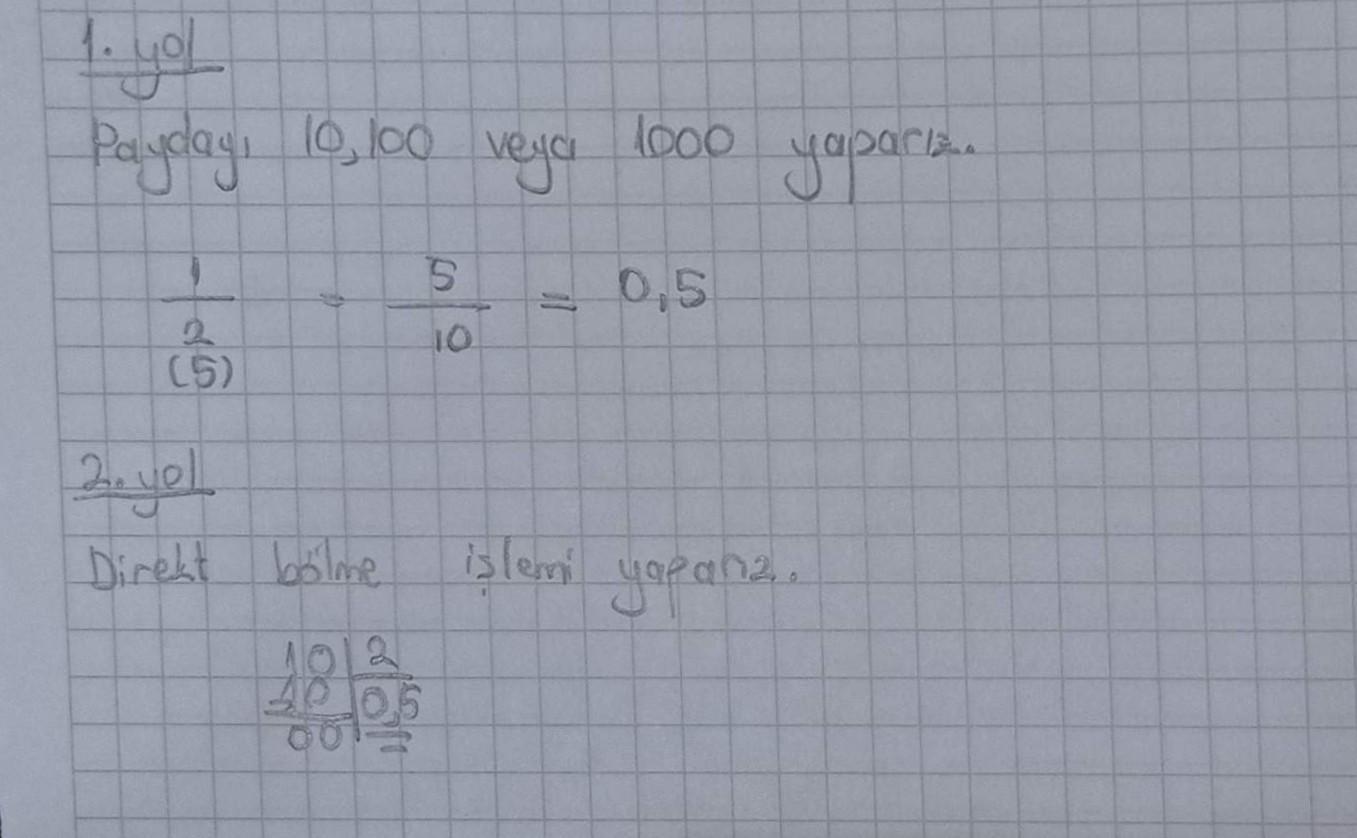 1. yol
Paydayı 10,100 veya 1000 yaparız.
1 5
— = — = 0,5
2 10
(5)
2. yol
Direkt bölme işlemi yaparız.
10 | 2
-10 | 0,5
00